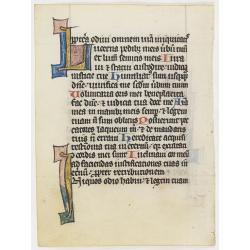 ppterea odivi omnem viam iniquitatis
Lucerna pedibz meis verbū tuū
et lumē semitis meis Iura
vi et statui custodire iudicia
iusticie tue Humiliat' sum usqueqz
dne vivifica me scdm verbū tuum
Voluntaria oris mei beneplacita
fac dne et iudicia tua doce me Ani
ma mea in manibz meis semp et legem
tuam nō sum oblitus Posuerunt pec
catores laqueum m et de mandatis
tuis nō erravi Hereditate acquisi
vi testimonia tua in eternū quia exultatio
cordis mei sunt Inclinavi cor meū
ad faciendas iustificationes tuas in
eternū propter retributionem
Iniquos odio habui et legem tuam